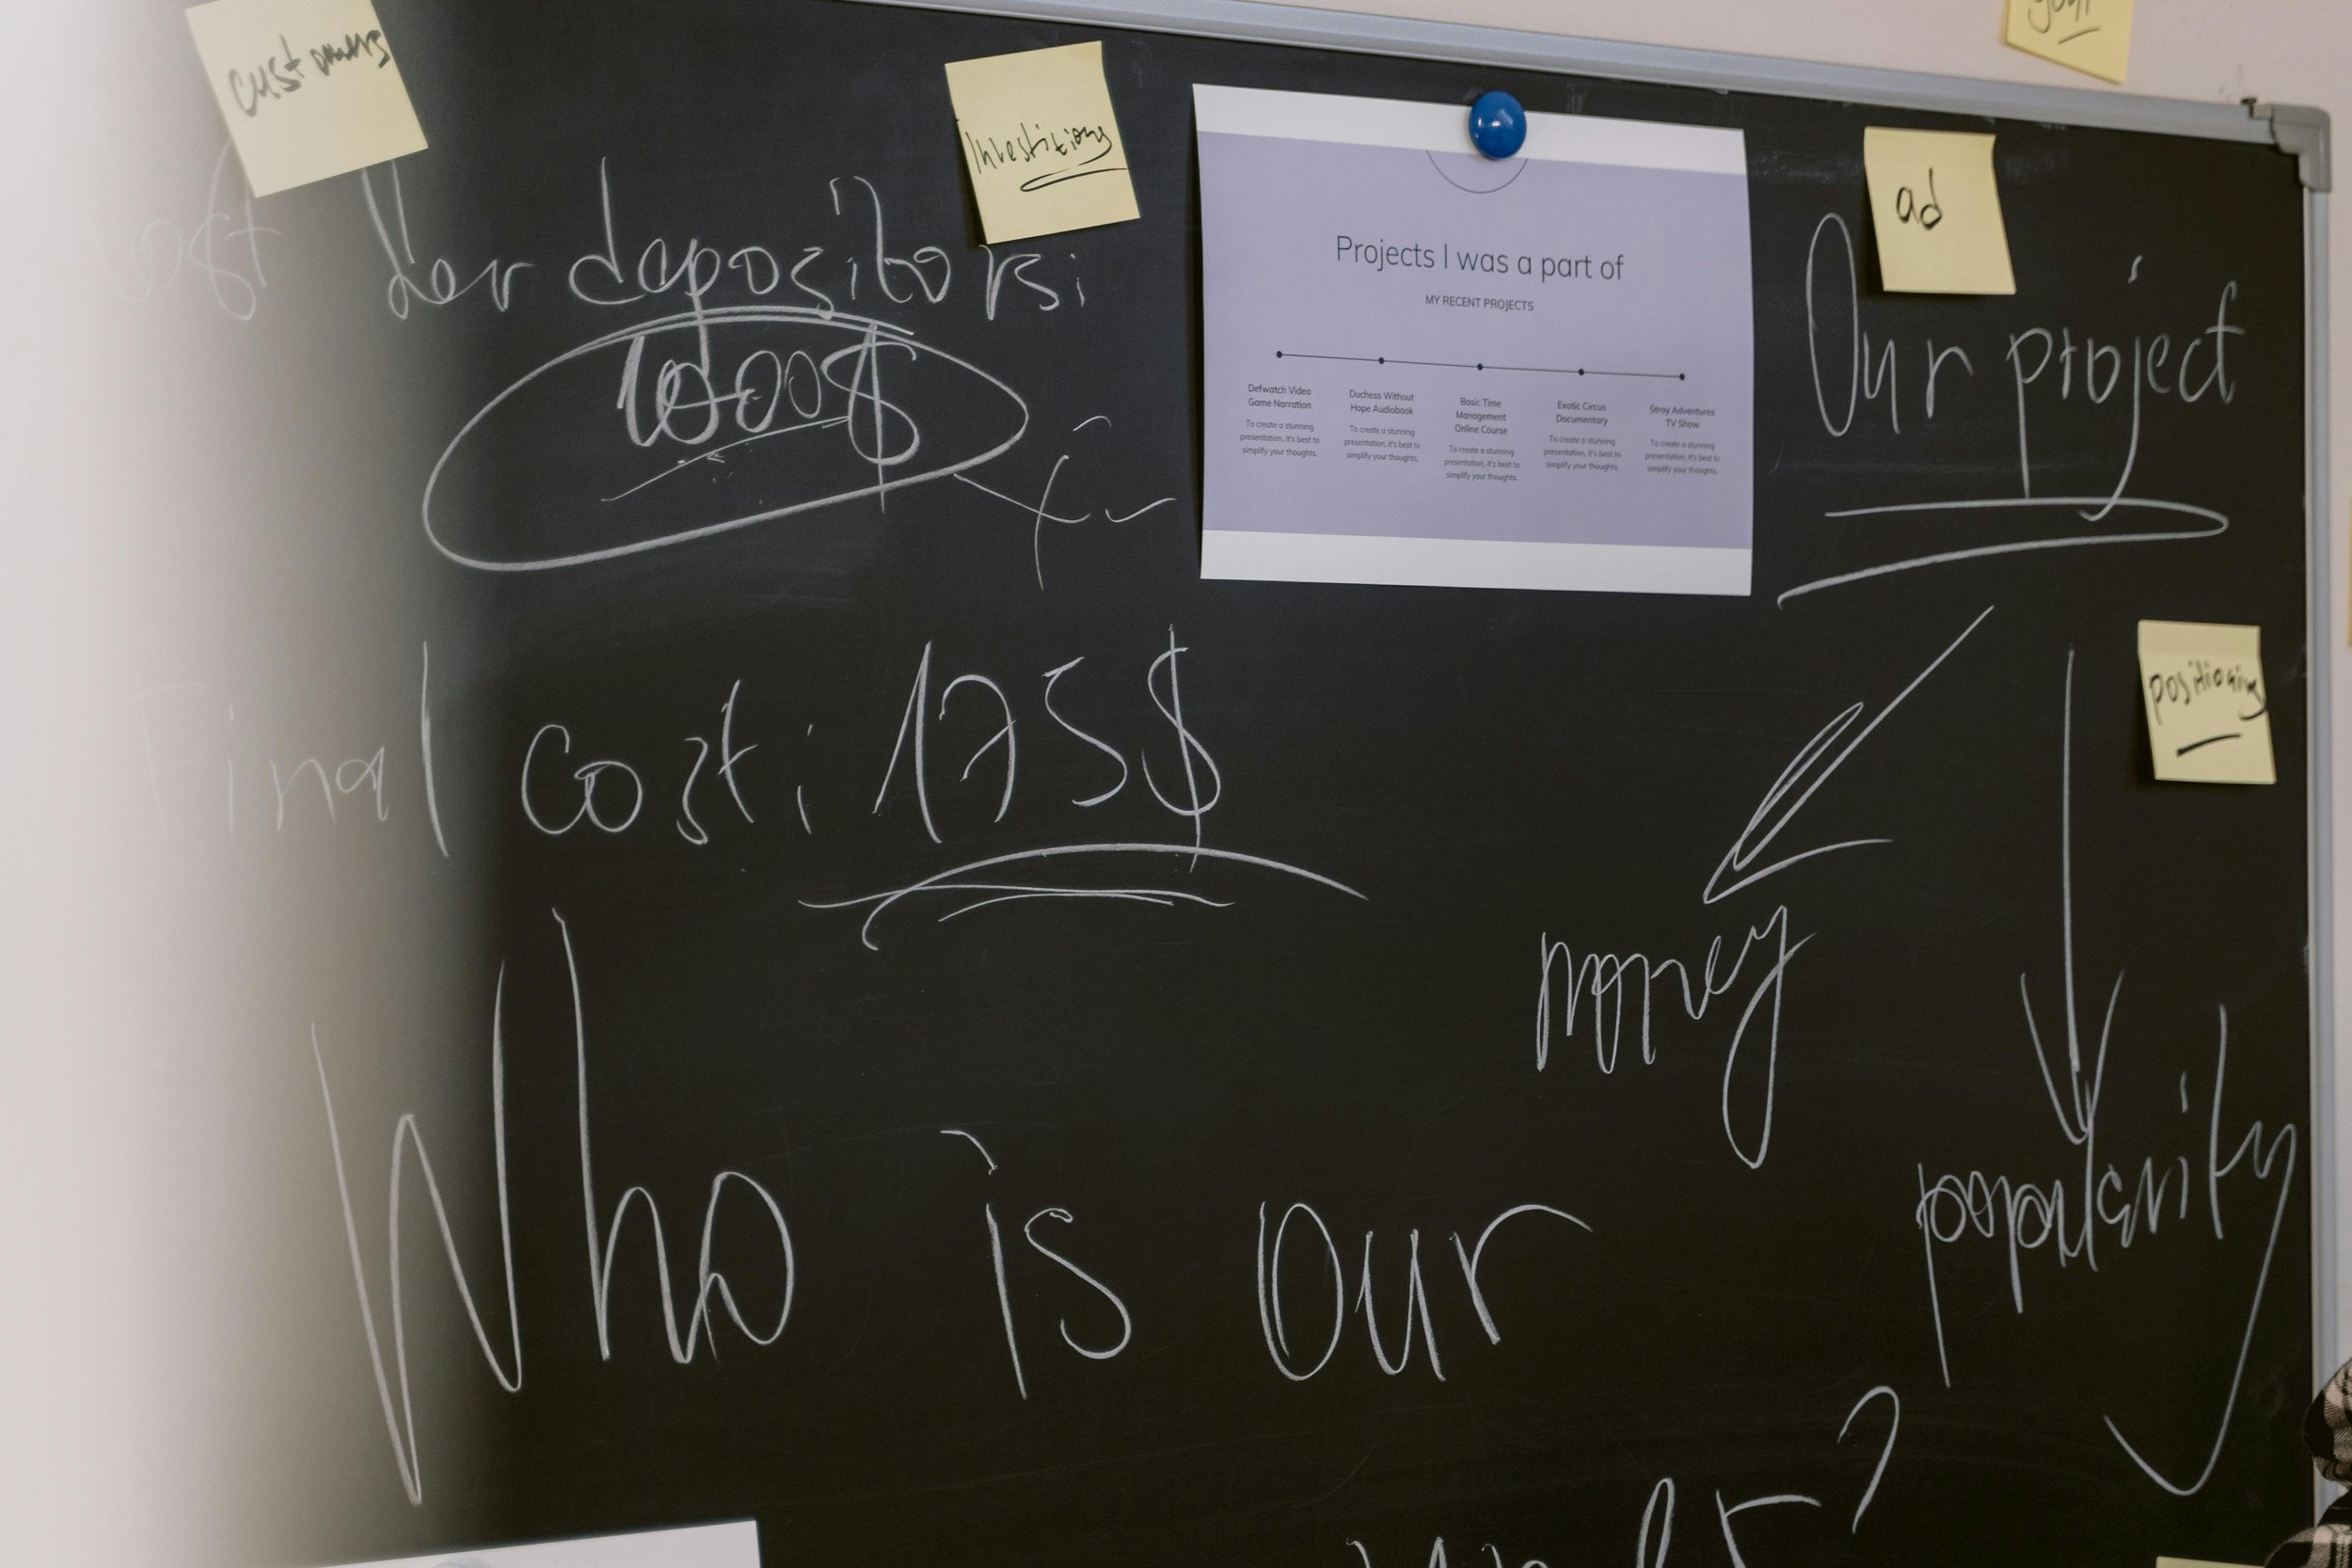 customers
Investitions
goal
ad
Cost for depositors:
1000$
Final cost: 175$
Who is our
Projects I was a part of
MY RECENT PROJECTS
Defwatch Video
Game Narration
To create a stunning
presentation, it's best to
simplify your thoughts.
Duchess Without
Hope Audiobook
To create a stunning
presentation, it's best to
simplify your thoughts.
Basic Time
Management
Online Course
To create a stunning
presentation, it's best to
simplify your thoughts.
Exotic Circus
Documentary
To create a stunning
presentation, it's best to
simplify your thoughts.
Stray Adventures
TV Show
To create a stunning
presentation, it's best to
simplify your thoughts.
Our project
positioning
money
popularity
?